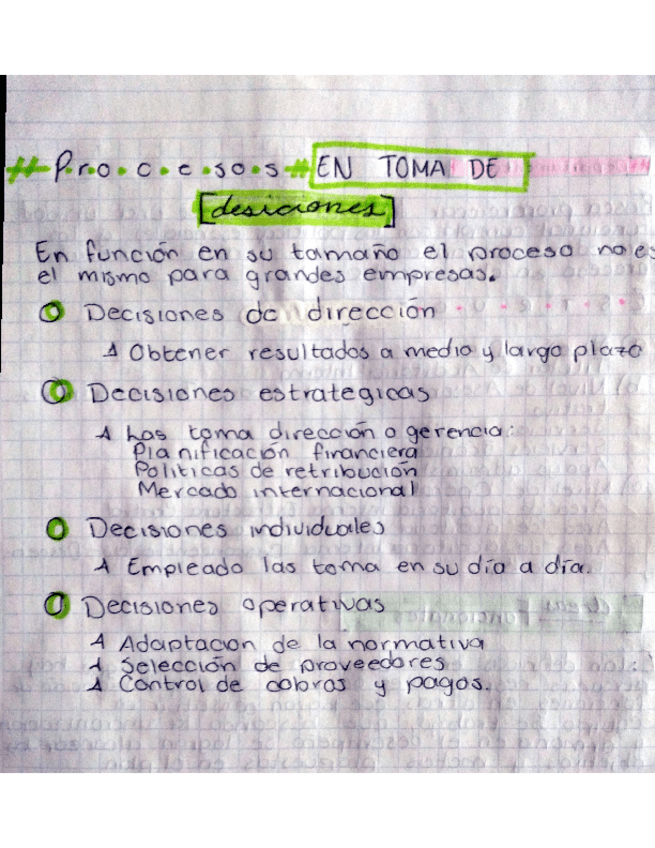 # P.r.o.c.e.s.o.s # EN TOMA DE
[desiciones]
En función en su tamaño el proceso no es
el mismo para grandes empresas.
Decisiones de dirección
Obtener resultados a medio y largo plazo
Decisiones estrategicas
Las toma dirección o gerencia:
Planificación financiera
Politicas de retribución
Mercado internacional
Decisiones individuales
Empleado las toma en su día a día.
Decisiones operativas
Adaptacion de la normativa
Selección de proveedores
Control de cobros y pagos.